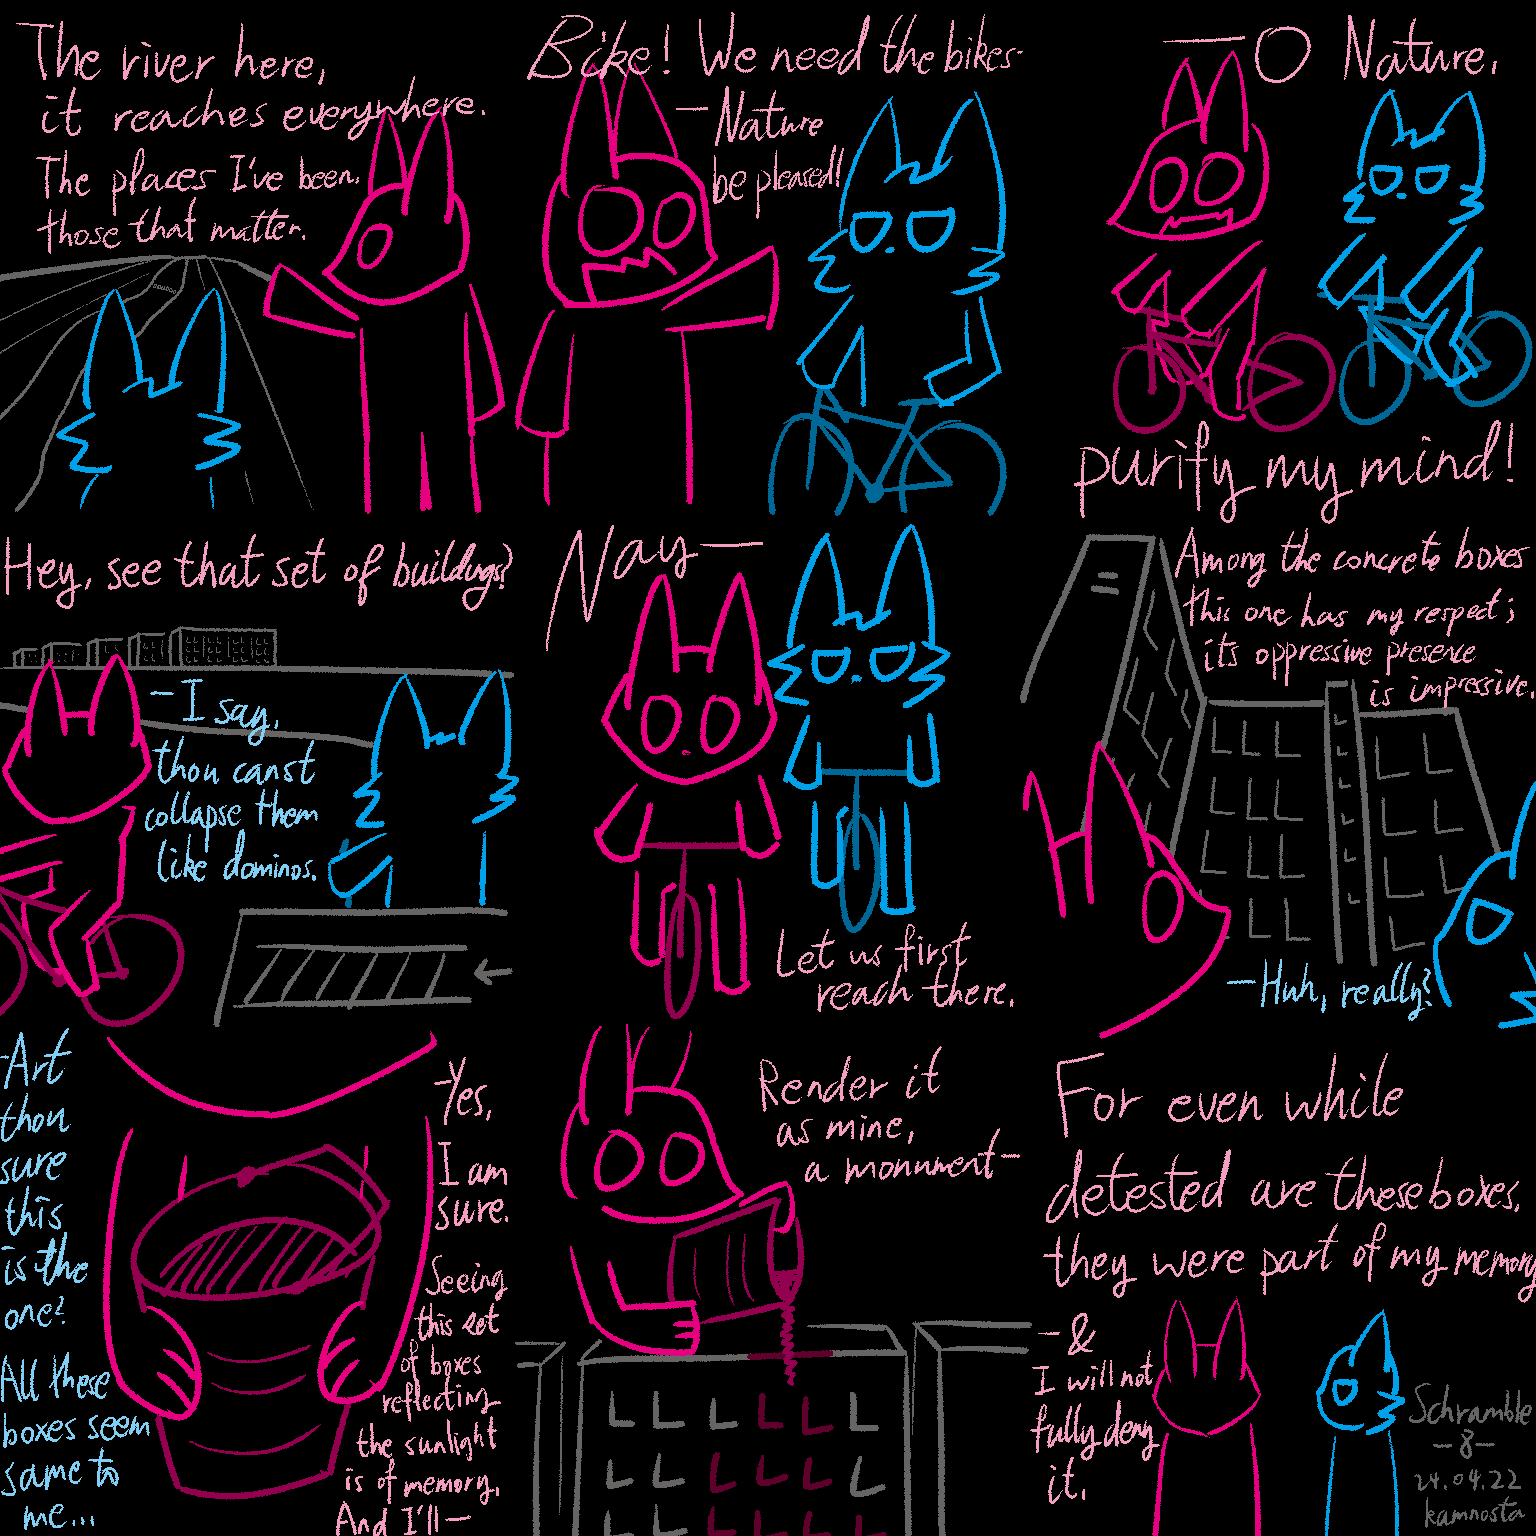 The river here,
it reaches everywhere.
The places I've been,
those that matter.
Bike! We need the bikes-
—Nature
be pleased!
—O Nature,
purify my mind!
Hey, see that set of buildings?
—I say,
thou canst
collapse them
like dominos.
Nay—
Let us first
reach there.
Among the concrete boxes
this one has my respect;
its oppressive presence
is impressive.
—Huh, really?
-Art
thou
sure
this
is the
one?
All these
boxes seem
same to
me...
-Yes,
I am
sure.
Seeing
this set
of boxes
reflecting
the sunlight
is of memory.
And I'll—
Render it
as mine,
a monument—
For even while
detested are these boxes,
they were part of my memory
—&
I will not
fully deny
it.
Schramble
—8—
24.04.22
kamnosta